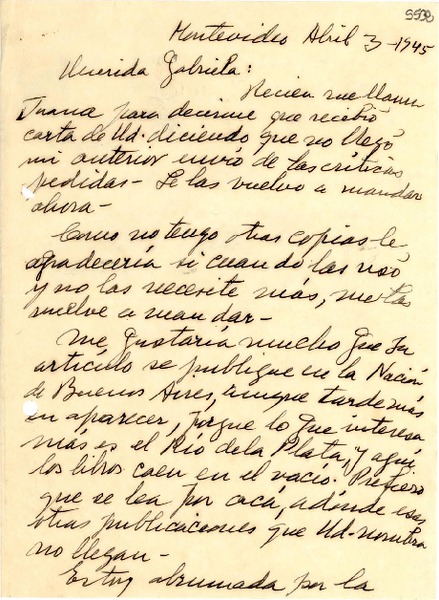 Montevideo Abril 3-1945
Querida Gabriela:
Recien me llama
Juana para decirme que recibió
carta de Ud. diciendo que no llegó
mi anterior envio de las críticas
pedidas- Se las vuelvo a mandar
ahora-
Como no tengo otras copias le
agradecería si cuando las usó
y no las necesite más, me las
vuelve a mandar-
Me gustaría mucho que su
artículo se publique en la Nación
de Buenos Aires, aunque tarde más
en aparecer, porque lo que interesa
más es el Río de la Plata, y aquí
los libros caen en el vacío. Prefiero
que se lea por acá, adónde esas
otras publicaciones que Ud. nombra
no llegan-
Estoy abrumada por la